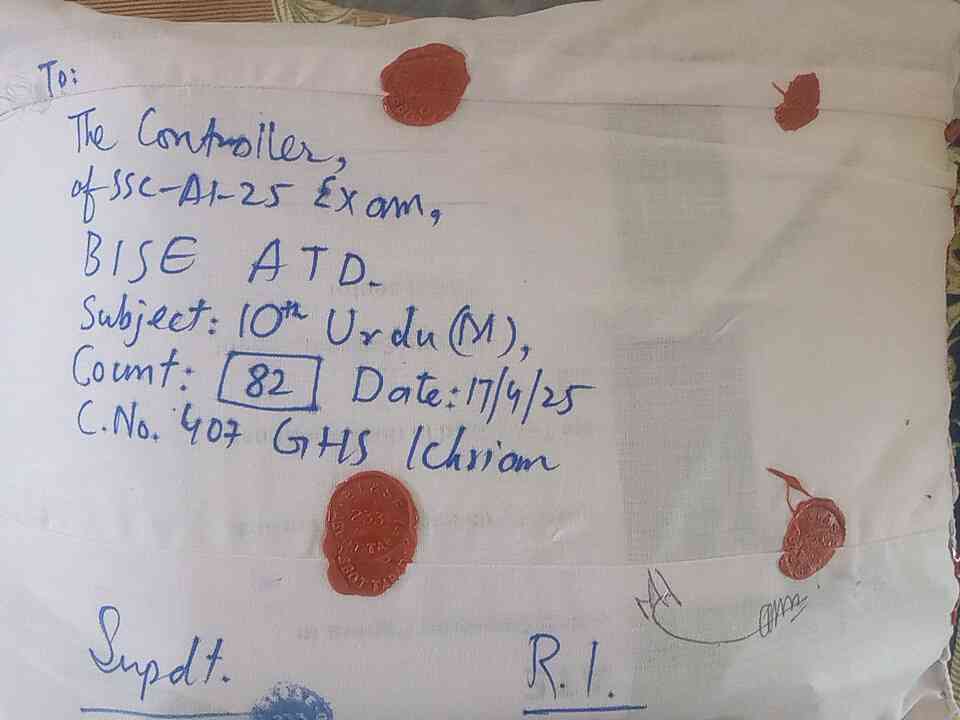 To:
The Controller,
of SSC-A1-25 Exam,
BISE ATD.
Subject: 10th Urdu (M),
Count: 82 Date: 17/4/25
C.No. 407 GHS Ichrian
233
Supdt. R.I.